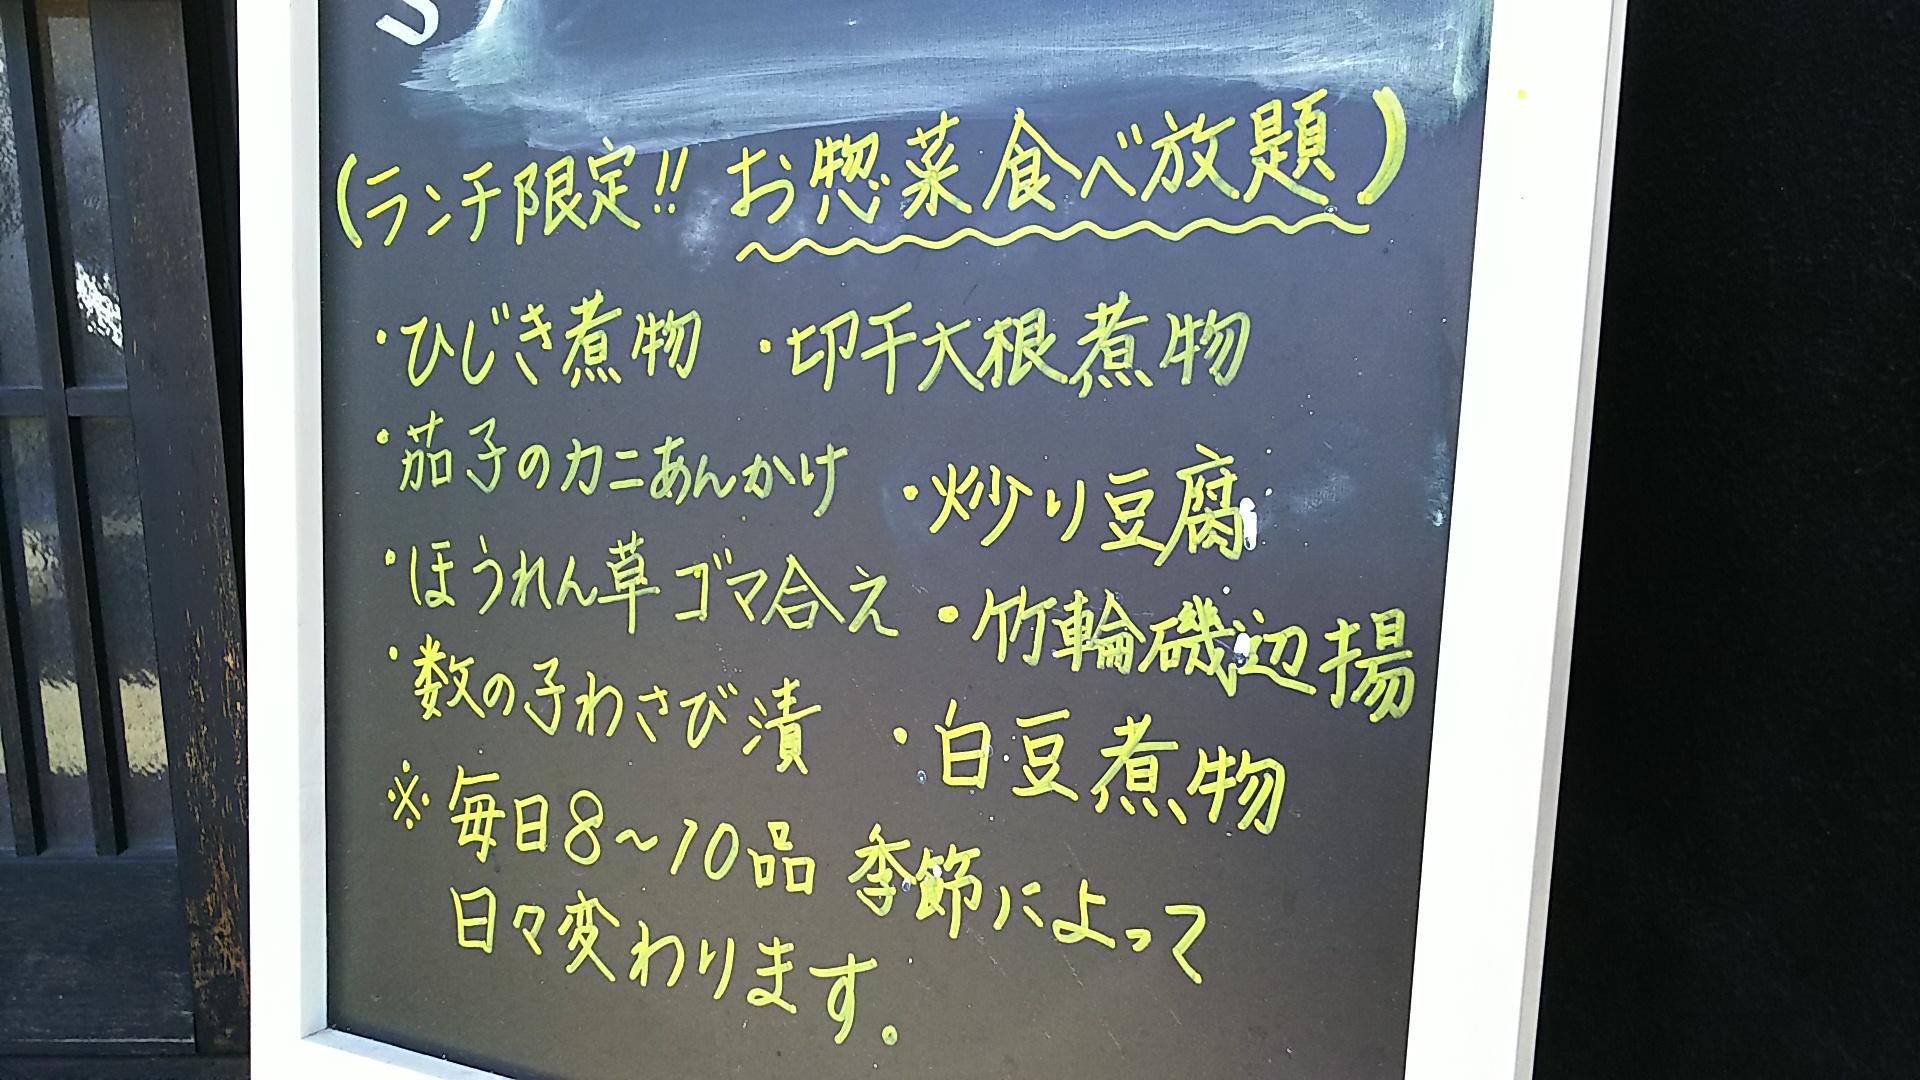 (ランチ限定!! お惣菜食べ放題)
・ひじき煮物 ・切干大根煮物
・茄子のカニあんかけ ・炒り豆腐
・ほうれん草ゴマ合え ・竹輪磯辺揚
・数の子わさび漬 ・白豆煮物
※毎日8〜10品 季節によって
日々変わります。